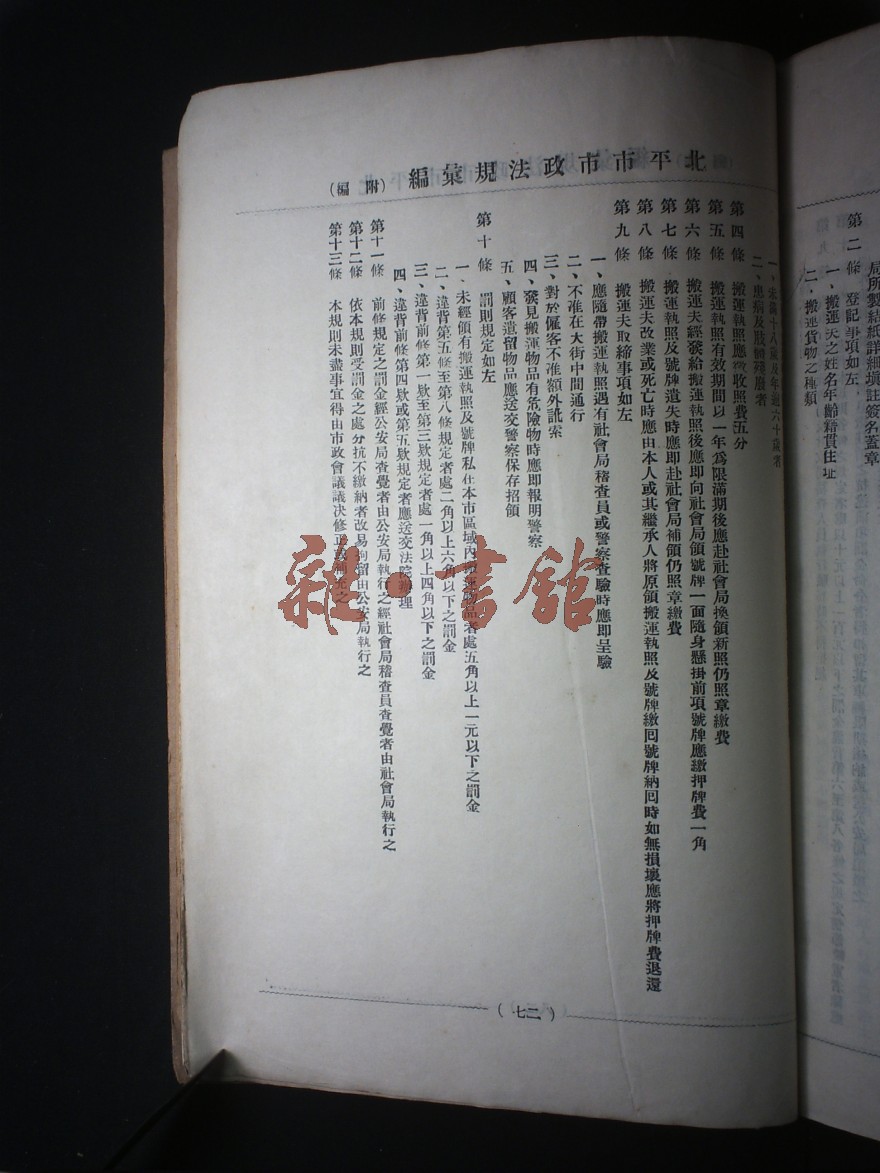 局所製結紙詳細填註簽名蓋章
第二條 登記事項如左
一、搬運夫之姓名年齡籍貫住址
二、搬運貨物之種類
北平市市政法規彙編 (附編)
一、未滿十八歲及年逾六十歲者
二、患病及肢體殘廢者
第四條 搬運執照應徵收照費五分
第五條 搬運執照有效期間以一年為限滿期後應赴社會局換領新照仍照章繳費
第六條 搬運夫經發給搬運執照後應即向社會局領號牌一面隨身懸掛前項號牌應繳押牌費一角
第七條 搬運執照及號牌遺失時應即赴社會局補領仍照章繳費
第八條 搬運夫改業或死亡時應由本人或其繼承人將原領搬運執照及號牌繳回號牌納回時如無損壞應將押牌費退還
第九條 搬運夫取締事項如左
一、應隨帶搬運執照遇有社會局稽查員或警察查驗時應即呈驗
二、不准在大街中間通行
三、對於僱客不准額外訛索
四、發見搬運物品有危險物時應即報明警察
五、顧客遺留物品應送交警察保存招領
第十條 罰則規定如左
一、未經領有搬運執照及號牌私在本市區域內搬運物品者處五角以上一元以下之罰金
二、違背第五條至第八條規定者處二角以上六角以下之罰金
三、違背前條第一欵至第三欵規定者處一角以上四角以下之罰金
四、違背前條第四欵或第五欵規定者應送交法院辦理
第十一條 前條規定之罰金經公安局查覺者由公安局執行之經社會局稽查員查覺者由社會局執行之
第十二條 依本規則受罰金之處分抗不繳納者改易拘留由公安局執行之
第十三條 本規則未盡事宜得由市政會議議決修正或補充之
(七二)
雜·書館